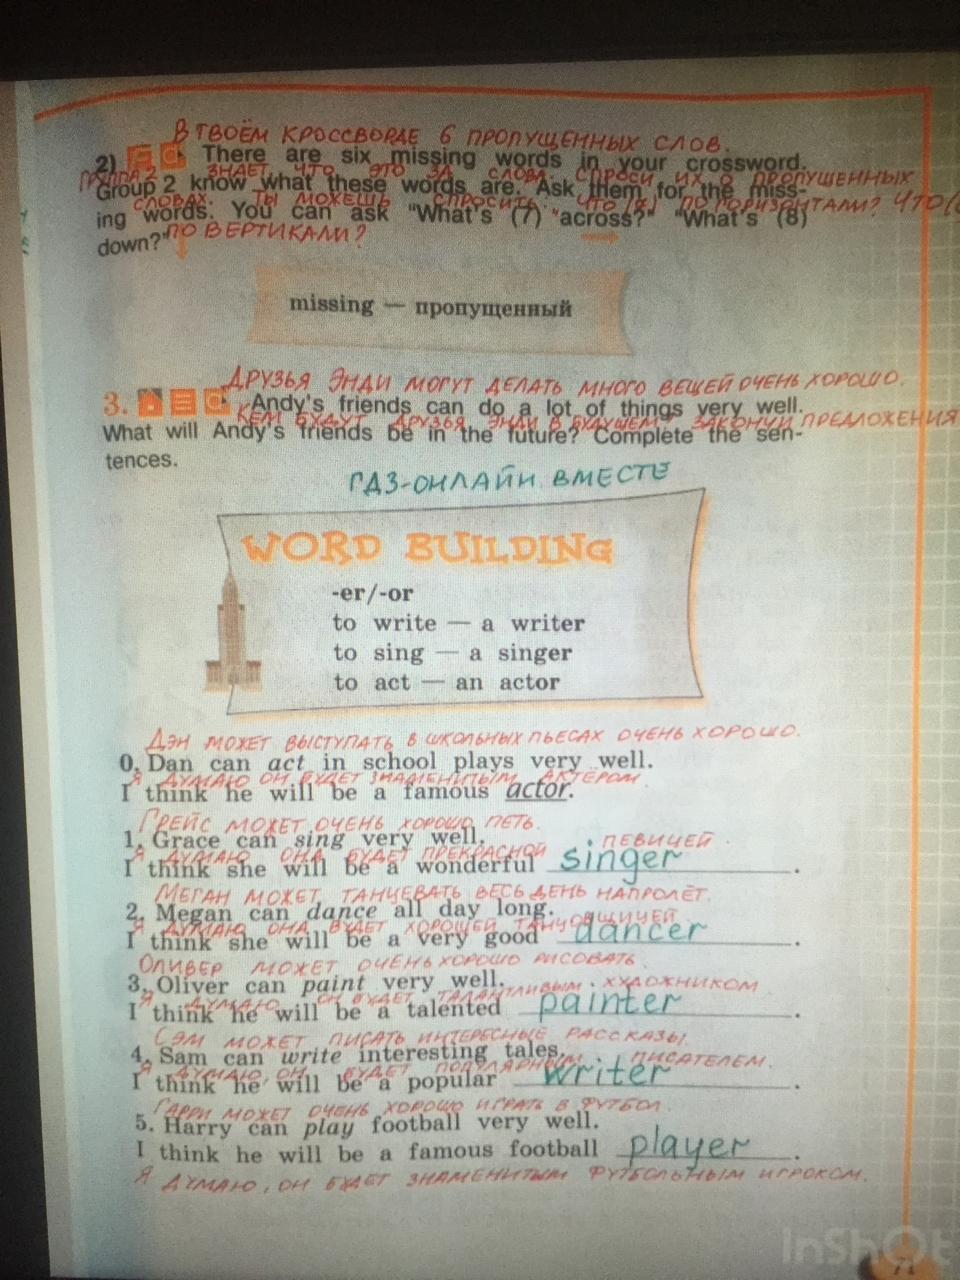 В ТВОЁМ КРОССВОРДЕ 6 ПРОПУЩЕННЫХ СЛОВ.
2) There are six missing words in your crossword.
ГРУППА 2 ЗНАЕТ ЧТО ЭТО ЗА СЛОВА. СПРОСИ ИХ О ПРОПУЩЕННЫХ
Group 2 know what these words are. Ask them for the miss-
СЛОВАХ. ТЫ МОЖЕШЬ СПРОСИТЬ ЧТО ПО ГОРИЗОНТАЛИ? ЧТО
ing words. You can ask "What's (7) across?" "What's (8)
down?" ПО ВЕРТИКАЛИ?
missing — пропущенный
ДРУЗЬЯ ЭНДИ МОГУТ ДЕЛАТЬ МНОГО ВЕЩЕЙ ОЧЕНЬ ХОРОШО.
3. Andy's friends can do a lot of things very well.
КЕМ БУДУТ ДРУЗЬЯ ЭНДИ В БУДУЩЕМ? ЗАКОНЧИ ПРЕДЛОЖЕНИЯ
What will Andy's friends be in the future? Complete the sen-
tences.
ГДЗ-ОНЛАЙН ВМЕСТЕ
WORD BUILDING
-er/-or
to write — a writer
to sing — a singer
to act — an actor
ДЭН МОЖЕТ ВЫСТУПАТЬ В ШКОЛЬНЫХ ПЬЕСАХ ОЧЕНЬ ХОРОШО.
0. Dan can act in school plays very well.
Я ДУМАЮ ОН БУДЕТ ЗНАМЕНИТЫМ АКТЁРОМ
I think he will be a famous actor.
ГРЕЙС МОЖЕТ ОЧЕНЬ ХОРОШО ПЕТЬ.
1. Grace can sing very well.
Я ДУМАЮ ОНА БУДЕТ ПРЕКРАСНОЙ ПЕВИЧЕЙ
I think she will be a wonderful singer.
МЕГАН МОЖЕТ ТАНЦЕВАТЬ ВЕСЬ ДЕНЬ НАПРОЛЁТ.
2. Megan can dance all day long.
Я ДУМАЮ ОНА БУДЕТ ХОРОШЕЙ ТАНЦОВЩИЦЕЙ
I think she will be a very good dancer.
ОЛИВЕР МОЖЕТ ОЧЕНЬ ХОРОШО РИСОВАТЬ.
3. Oliver can paint very well.
Я ДУМАЮ ОН БУДЕТ ТАЛАНТЛИВЫМ ХУДОЖНИКОМ
I think he will be a talented painter.
СЭМ МОЖЕТ ПИСАТЬ ИНТЕРЕСНЫЕ РАССКАЗЫ.
4. Sam can write interesting tales.
Я ДУМАЮ, ОН БУДЕТ ПОПУЛЯРНЫМ ПИСАТЕЛЕМ.
I think he will be a popular writer.
ГАРРИ МОЖЕТ ОЧЕНЬ ХОРОШО ИГРАТЬ В ФУТБОЛ.
5. Harry can play football very well.
I think he will be a famous football player.
Я ДУМАЮ, ОН БУДЕТ ЗНАМЕНИТЫМ ФУТБОЛЬНЫМ ИГРОКОМ.
InShOt
71